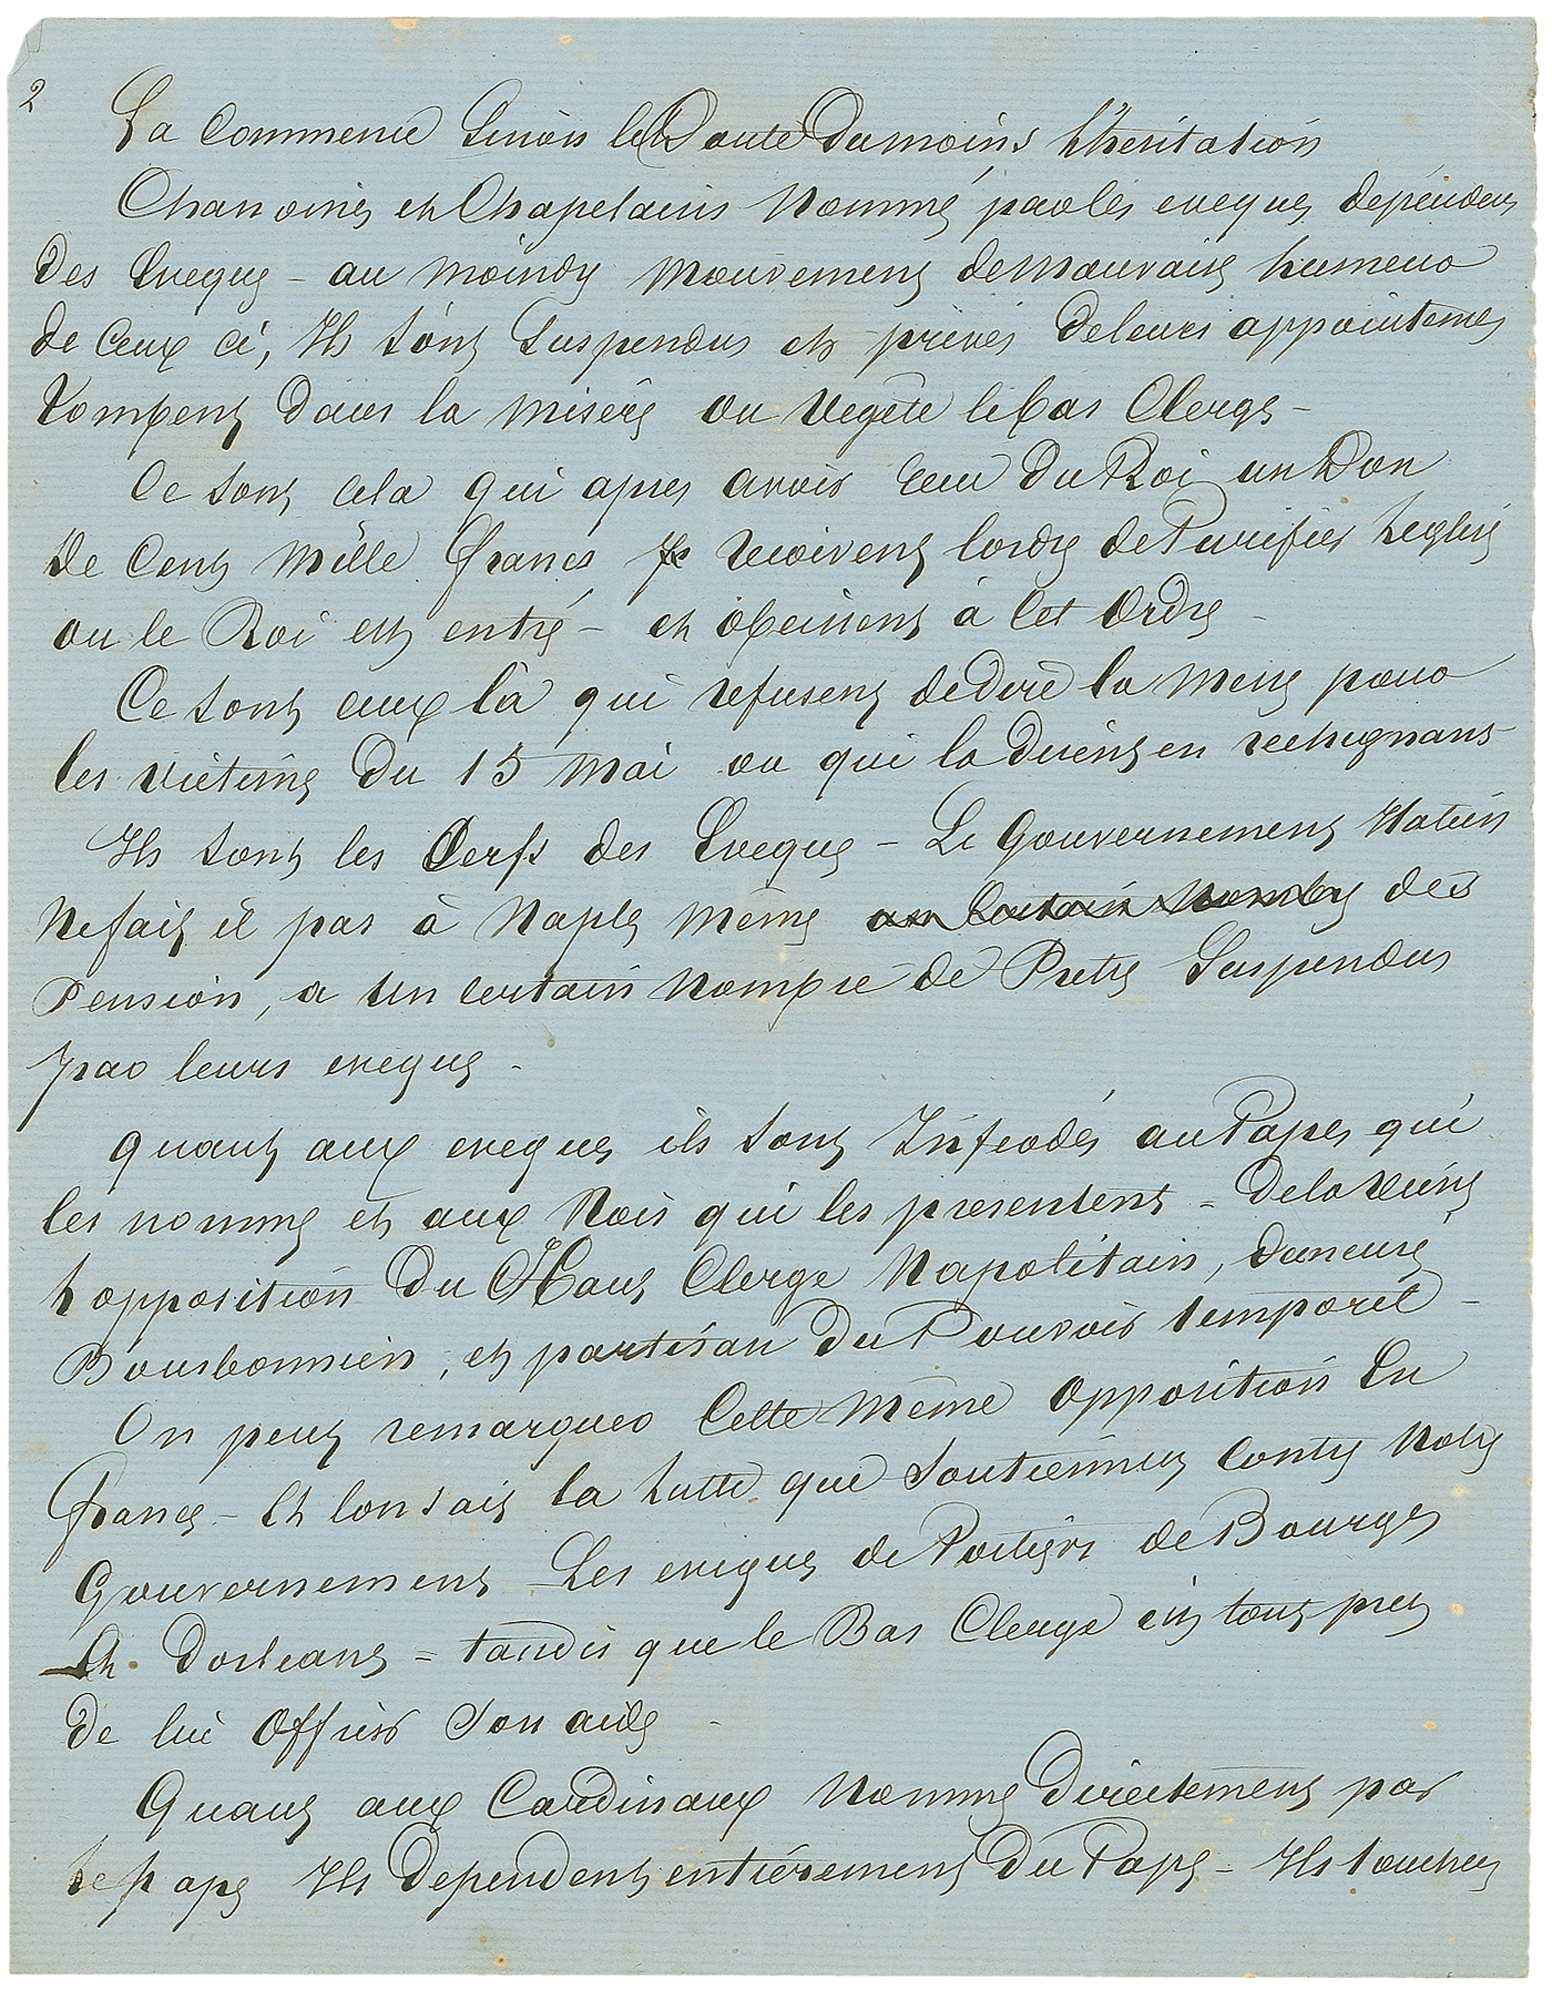 2
La commence Sinon le Doute Du moins l'hesitation
Chanoines et Chapelains Nommé par les eveques dependent
Des Eveques – au moindre Mouvement de Mauvaise humeur
de Ceux ci, Ils sont Suspendus et privés De leurs appointemens
Tombent Dans la misère ou Vegète le bas Clergé –
Ce sont cela qui apres avoir recu Du Roi un Don
De Cent Mille francs recoivent lordre de Purifier leglise
ou le Roi est entré – et obeissent à Cet Ordre –
Ce sont ceux là qui refusent de dire la Messe pour
les victimes Du 15 Mai ou qui la Disent en rechignant –
Ils sont les Cerfs des Eveques – Le Gouvernement Italien
Ne fait il pas à Naples Même un Certain Nombre des
Pension, a un certain Nombre de Pretres Suspendus
par leurs eveques –
Quant aux eveques ils sont Inféodés au Papes qui
les nomme et aux Rois qui les presentent – De la vient
l opposition Du Haut Clergé Napolitain, Demeuré
Bourbonnien, et partisan Du Pouvoir temporel –
On peut remarquer Cette Même Opposition En
France – Et lon sait la lutte que Soutiennent Contre Notre
Gouvernement Les eveques de Poitiers de Bourges
Et Dorleans – tandis que le Bas Clergé est tout pret
De lui Offrir Son aide –
Quant aux Cardinaux Nommé Directement par
le pape Ils Dependent entièrement Du Pape – Ils touchent